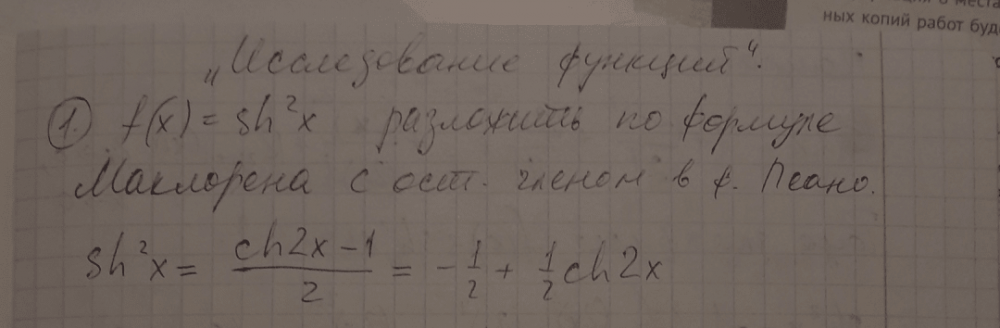 места
ных копий работ буд
„Исследование функций“.
1. f(x) = sh²x разложить по формуле
Маклорена с ост. членом в ф. Пеано.
sh²x = (ch2x − 1)/2 = −1/2 + 1/2 ch2x